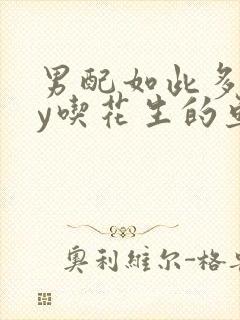 男配如此多
y喫花生的
奧利維尔-格